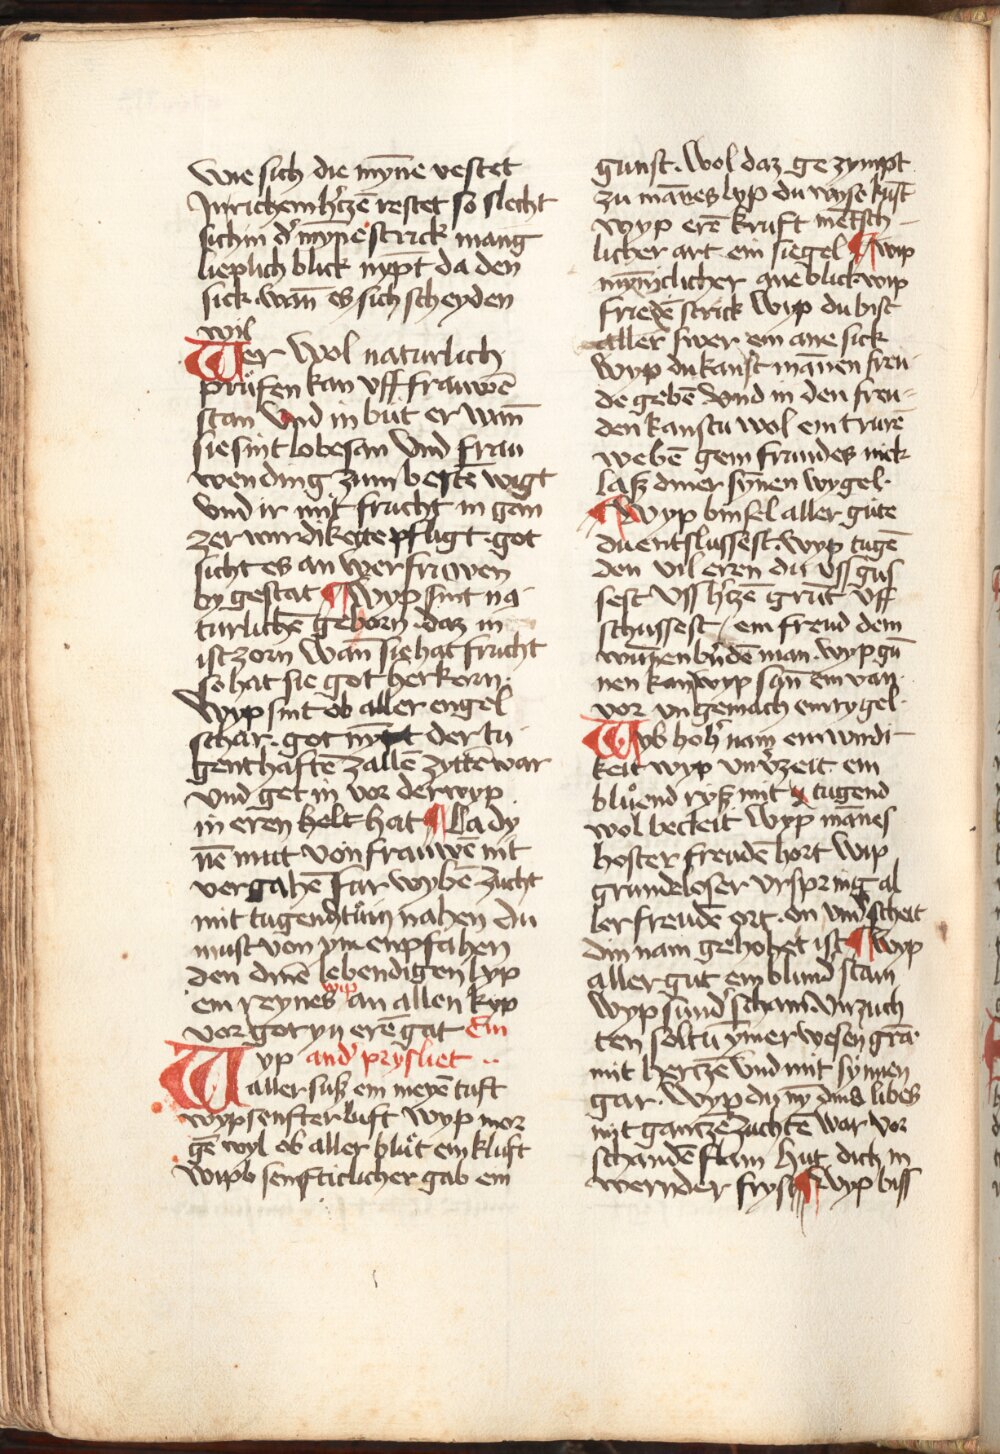 wie sich die mȳne vestet
Jn richem h̓tzē restet so slecht
sich in d̓ mȳne strick mang
lieplich blick nȳpt da den
sick. wan̄ es sich scheyden
wil
Wer wol naturlich
prüfen kan vff frauwē
stan vnd in büt er wan̄
sie sint lobesan vnd frau
wen ding zum bestē wigt
vnd ir mit frucht in gan
zer wirdikeyte pfligt. got
sicht es an wer fruwen
by gestat ¶ Wyp sint na
turlichē geborn. daz in
ist zorn wan̄ sie hat frucht
so hat sie got herkorn.
Wyp sint ob aller engel
schar. got nȳpt der tu
genthaftē zallē zyttē war
vnd get in vor der wyp
in eren helt hat ¶ La dy
nē mut von frauwē nit
vergahē far wybē zucht
mit tugend tůin nahen du
must von ym enpfahen
den dinē lebendigen lyp
ein reynes wip an allen kyp
vor got yn erē gat Ein
Wyp and̓ prysliet ..
aller süß ein meyē tuft
wyp senfter luft wyp mor
gē wyl ob aller blůt ein kluft
wipb senfticlicher gab ein
gunst. wol daz ge zympt
zu man̄es lyp du wyse kust
wyp erē kruft mētsch
licher art ein siegel ¶ wip
mȳniclicher ane blick wip
friedē strick wyp du bist
aller swer ein ane sick
wyp du kanst man̄en freu
de gebē vnd in den freu
den kanstu wol ein trurē
webē gem frundes nick
laß diner sȳnen wygel.
¶ Wyp bin sel aller gute
du entslussest. wyp tugē
den vil eren du vsß gus
sest vsß h̓tzē grūt vff
schussest / ein freud dem
wūtzen bn̓dē man. wyp gū
nen kan wyp san̄ ein van
vor vn gemach ein rygel.
Wyb hoh̓ nam ein wirdi
keit wyp vn v̓zeit ein
blůend ryß mit tugend
wol becleit wyp man̄es
hoster freudē hort wip
grundeloser vrspring al
ler freudē ort. on vnd̓scheit
din nam gehohet ist ¶ wyp
aller gut ein blund̓ stam
wyp sund̓ scham. vnzuch
ten soltu ȳmer wesen gra
mit hertzē vnd mit synnen
gar. wyp du nȳ dins libes
mit gantzē zuchtē war vor
schandē flam hut dich in
wernder fryst ¶ Wyp biss